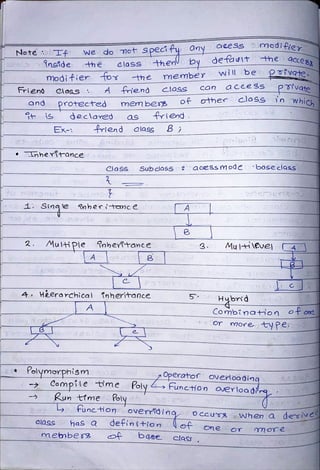 Note : If we do not specify any acess modifier
inside the class then by default the access
modifier for the member will be private.
Friend class : A friend class can access private
and protected members of other class in which
it is declared as friend.
Ex-: friend class B ;
• Inheritance
class subclass : acess mode base class
{
}
1. Single inheritance A
B
2. Multiple inheritance 3. Multilevel A
A B B
C C
4. Hierarchical inheritance 5. Hybrid
A combination of one
or more type.
B C
• Polymorphism Operator overloading
→ Compile time Poly Function overloading
→ Run time Poly
↳ Function overriding occurs when a derive
class has a definition of one or more
members of base class.